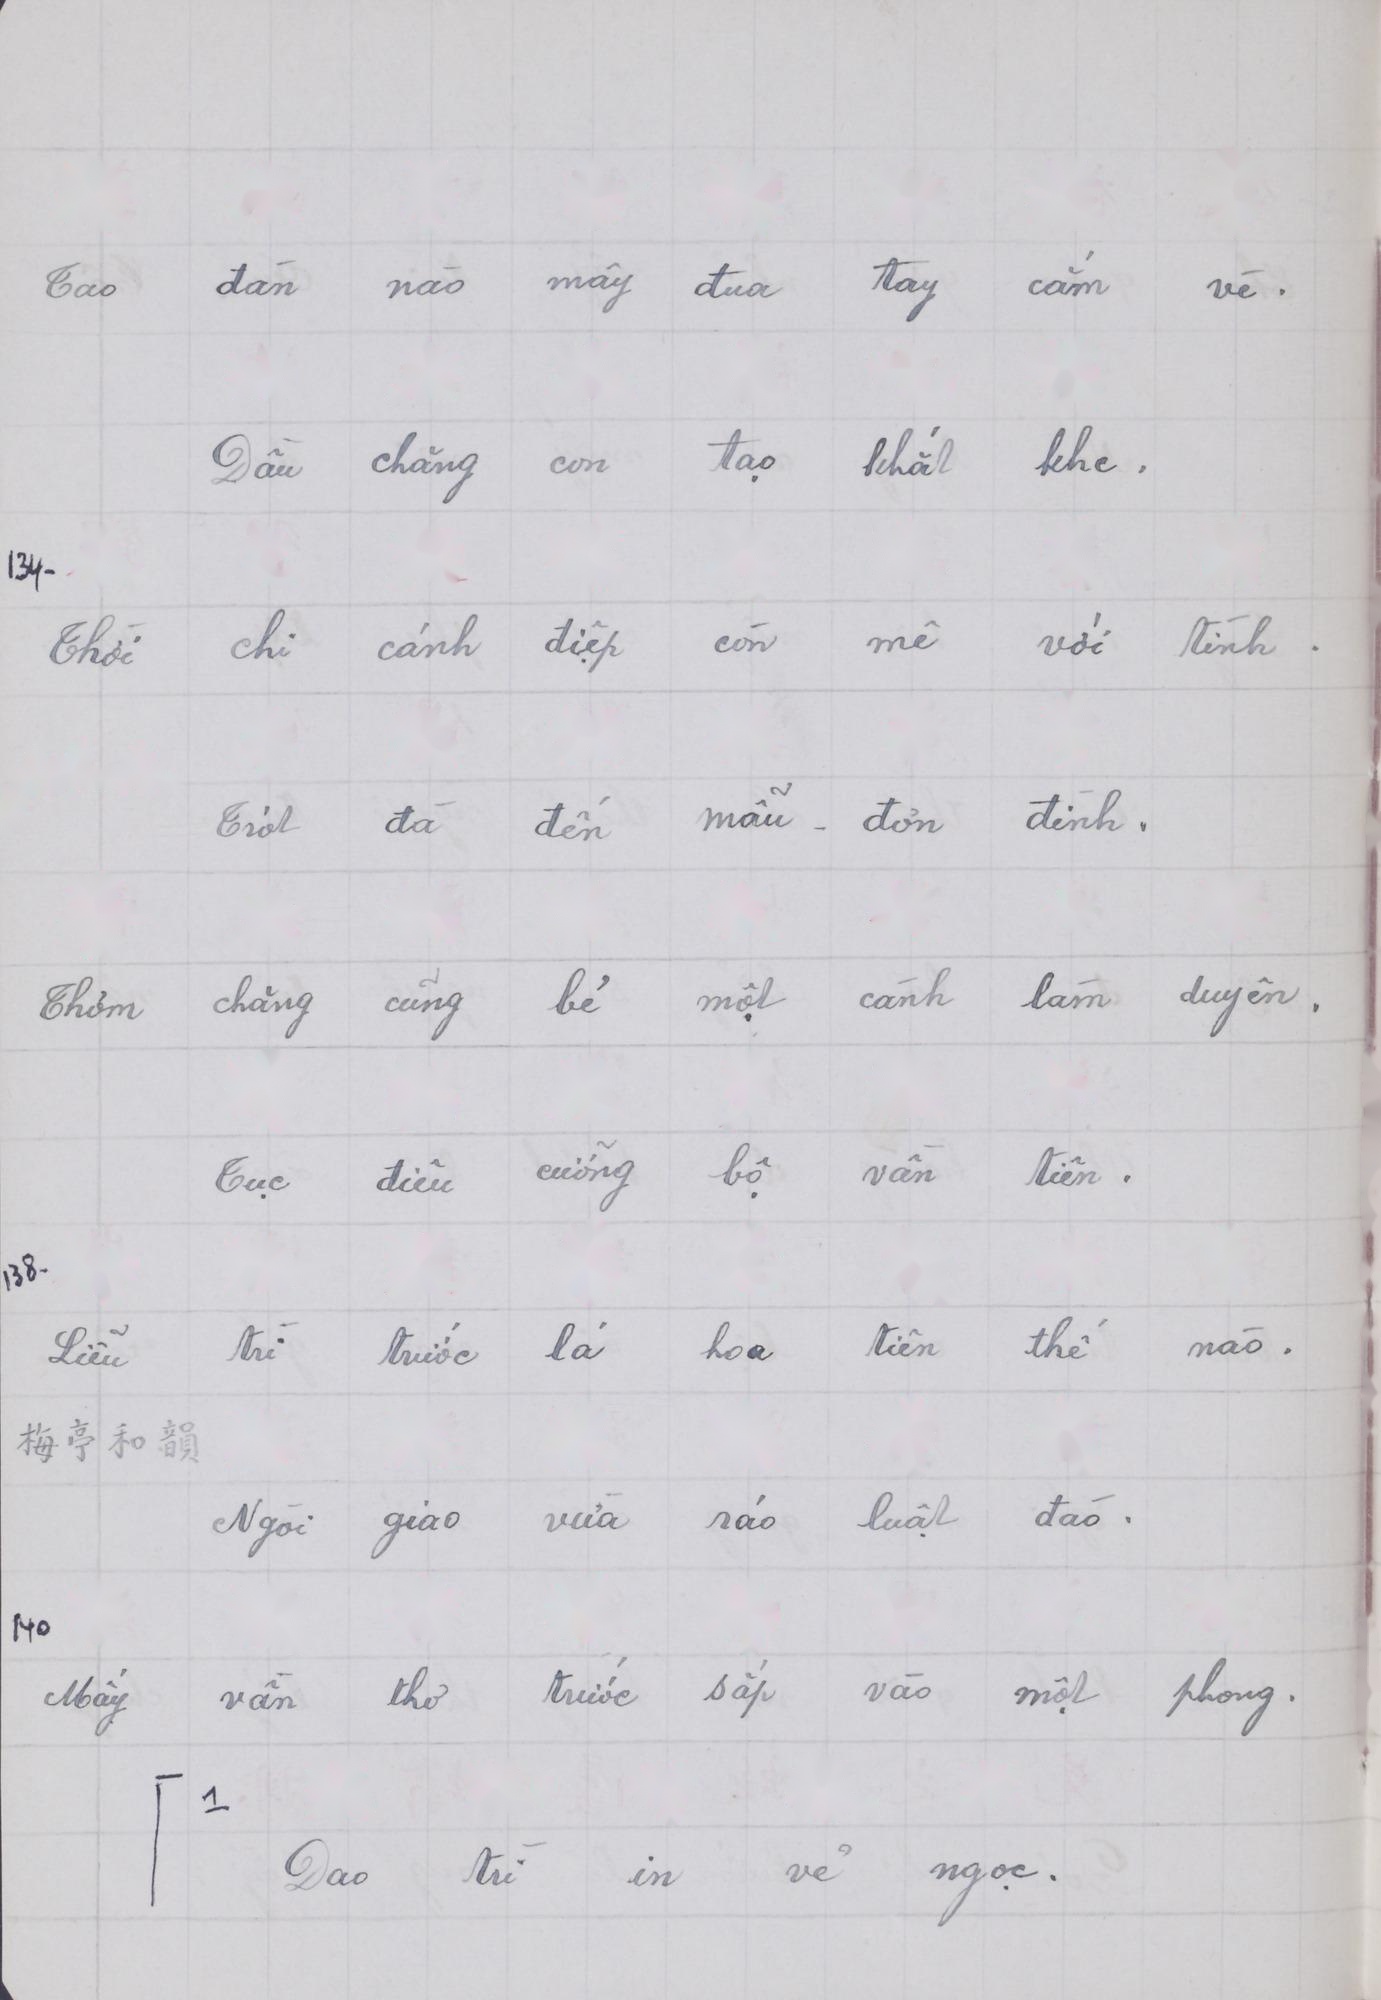 Tao đàn nào mấy đua tay cắm vè.
Dẫu chăng con tạo khắt khe.
134-
Thôi chi cánh điệp còn mê với tình.
Trót đà đến mẫu-đơn đình.
Thơm chăng cũng bẻ một cành làm duyên.
Tục điêu cưỡng bộ vần tiên.
138-
Liễu trì trước lá hoa tiên thế nào.
梅亭和韻
Ngòi giao vừa ráo luật đào.
140
Mấy vần thơ trước sắp vào một phong.
1
Dao trì in vẻ ngọc.